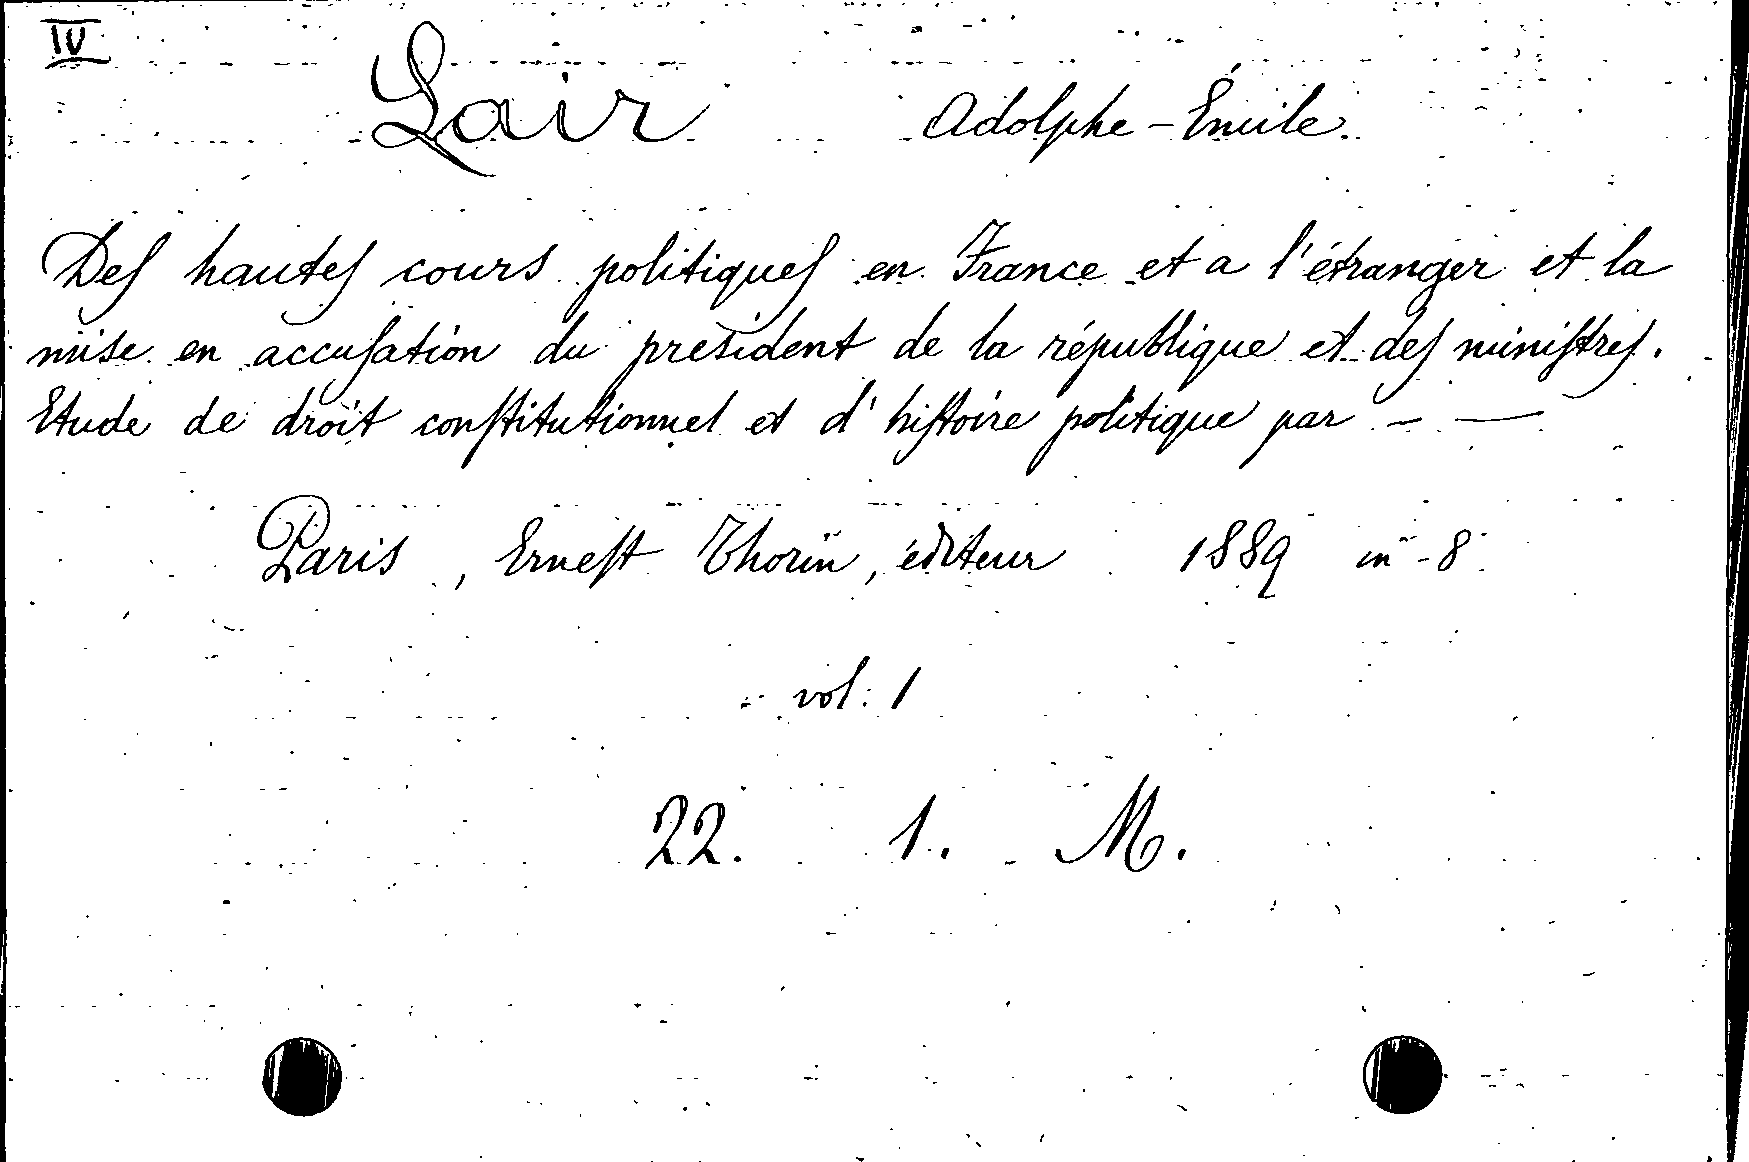 IV
Lair Adolphe-Émile.
Des hautes cours politiques en France et a l'étranger et la
mise en accusation du président de la république et des ministres.
Etude de droit constitutionnel et d'histoire politique par - —
Paris, Ernest Thorin, éditeur 1889 in-8
vol. 1
22. 1. M.